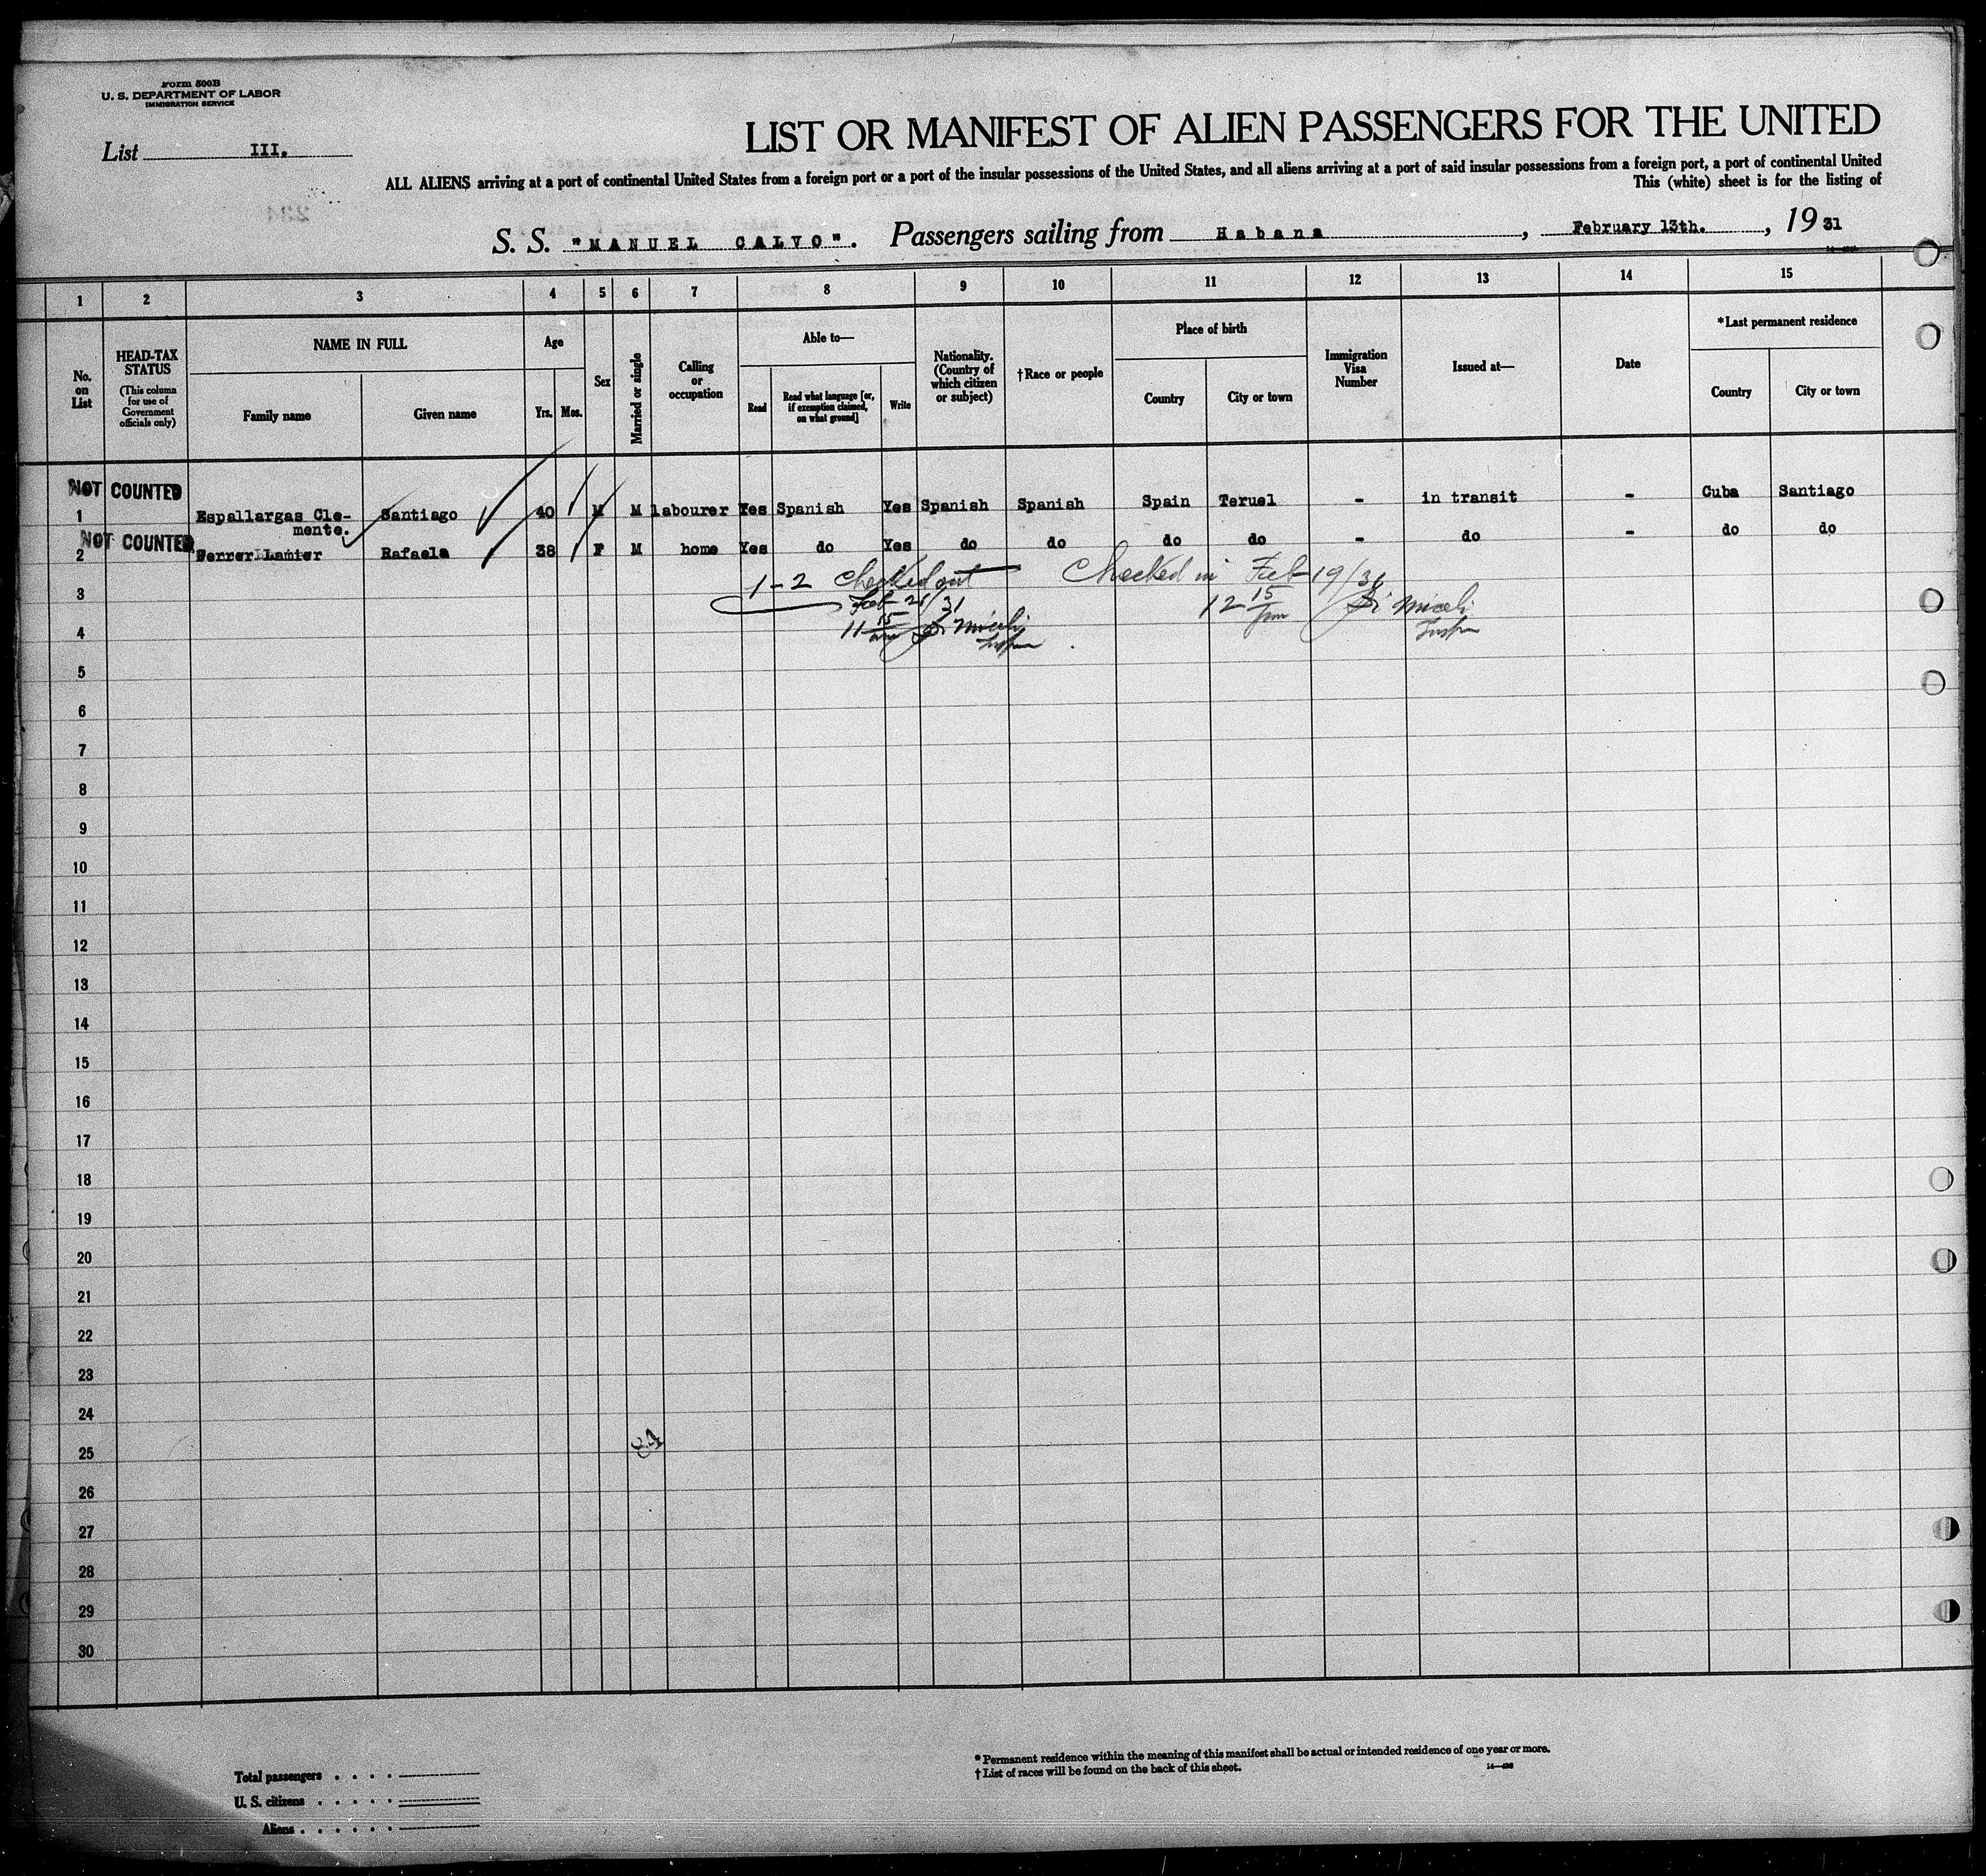 Form 500B
U. S. DEPARTMENT OF LABOR
IMMIGRATION SERVICE
List III.
LIST OR MANIFEST OF ALIEN PASSENGERS FOR THE UNITED
ALL ALIENS arriving at a port of continental United States from a foreign port or a port of the insular possessions of the United States, and all aliens arriving at a port of said insular possessions from a foreign port, a port of continental United
This (white) sheet is for the listing of
S. S. "MANUEL CALVO". Passengers sailing from Habana, February 13th., 19 31
1 2 3 4 5 6 7 8 9 10 11 12 13 14 15
No. on List
HEAD-TAX STATUS
(This column for use of Government officials only)
NAME IN FULL
Family name Given name
Age
Yrs. Mos.
Sex
Married or single
Calling or occupation
Able to—
Read Read what language [or, if exemption claimed, on what ground] Write
Nationality. (Country of which citizen or subject)
†Race or people
Place of birth
Country City or town
Immigration Visa Number
Issued at—
Date
*Last permanent residence
Country City or town
NOT COUNTED
1 Espallargas Cle- Santiago 40 M M labourer Yes Spanish Yes Spanish Spanish Spain Teruel - in transit - Cuba Santiago
mente.
NOT COUNTED
2 Ferrer Lamier Rafaela 38 F M home Yes do Yes do do do do - do - do do
1-2 Checked out Checked in Feb 19/31
Feb 21/31 12 15 pm Miceli
11 15 am Miceli Inspr
Inspr
3
4
5
6
7
8
9
10
11
12
13
14
15
16
17
18
19
20
21
22
23
24
84
25
26
27
28
29
30
Total passengers
U. S. citizens
Aliens
*Permanent residence within the meaning of this manifest shall be actual or intended residence of one year or more.
†List of races will be found on the back of this sheet.